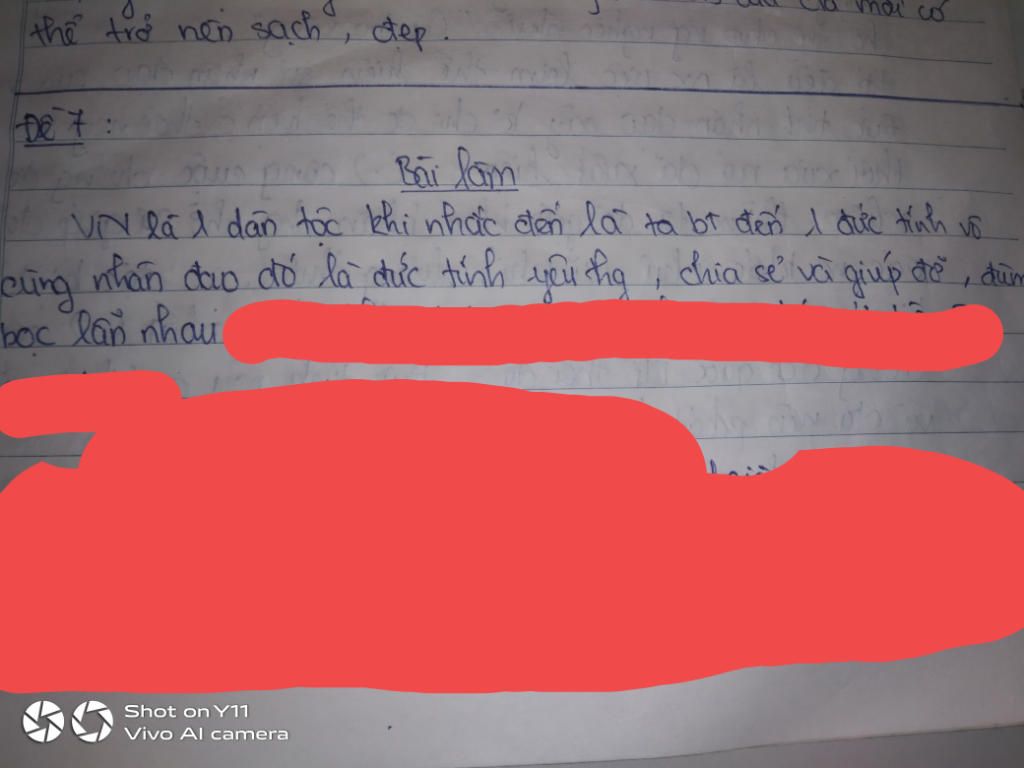 mới có
thể trở nên sạch, đẹp.
Đề 7:
Bài làm
VN là 1 dân tộc khi nhắc đến là ta bt đến 1 đức tính vô
cùng nhân đạo đó là đức tính yêu thg, chia sẻ và giúp đỡ, đùm
bọc lẫn nhau
Shot on Y11
Vivo AI camera